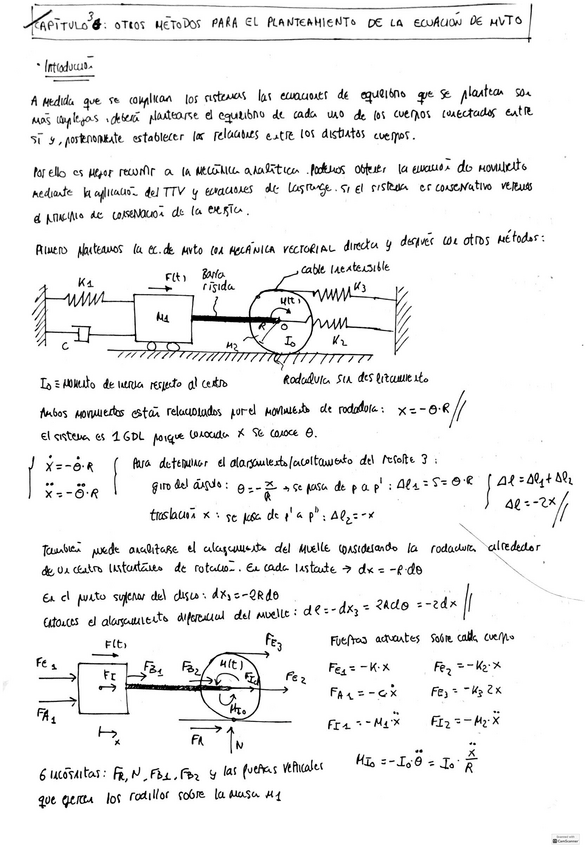 CAPÍTULO 3: OTROS MÉTODOS PARA EL PLANTEAMIENTO DE LA ECUACIÓN DE MVTO
· Introducción
A medida que se complican los sistemas las ecuaciones de equilibrio que se plantean son
más complejas, deberá plantearse el equilibrio de cada uno de los cuerpos conectados entre
sí y, posteriormente establecer las relaciones entre los distintos cuerpos.
Por ello es mejor recurrir a la mecánica analítica. Podemos obtener la ecuación de movimiento
mediante la aplicación del TTV y ecuaciones de Lagrange. Si el sistema es conservativo veremos
el principio de conservación de la energía.
Primero planteamos la ec. de mvto con MECÁNICA VECTORIAL directa y después con otros métodos:
K1
F(t)
Barra rígida
cable inextensible
K3
M1
M(t)
R
O
M2
I₀
K2
C
I₀ ≡ momento de inercia respecto al centro
Rodadura sin deslizamiento
Ambos movimientos están relacionados por el movimiento de rodadura: x = -θ·R //
El sistema es 1 GDL porque conocida x se conoce θ.
ẋ = -θ̇·R
ẍ = -θ̈·R
Para determinar el alargamiento/acortamiento del resorte 3:
giro del ángulo: θ = -x/R → se pasa de p a p': Δl₁ = S = θ·R
traslación x: se pasa de p' a p'': Δl₂ = -x
Δl = Δl₁ + Δl₂
Δl = -2x //
También puede analizarse el alargamiento del muelle considerando la rodadura alrededor
de un centro instantáneo de rotación. En cada instante → dx = -R·dθ
En el punto superior del disco: dx₃ = -2Rdθ
Entonces el alargamiento diferencial del muelle: dl = -dx₃ = 2Rdθ = -2dx //
F(t)
Fe1
FI
FB1
FB2
M(t)
FI2
Fe3
Fe2
FA1
MI₀
x
FR
N
Fuerzas actuantes sobre cada cuerpo
Fe1 = -K·x
Fe2 = -K₂·x
FA1 = -c·ẋ
Fe3 = -K₃ 2x
FI1 = -M₁·ẍ
FI2 = -M₂·ẍ
MI₀ = -I₀·θ̈ = I₀·ẍ/R
6 incógnitas: FR, N, FB1, FB2 y las fuerzas verticales
que ejercen los rodillos sobre la masa M1
CamScanner